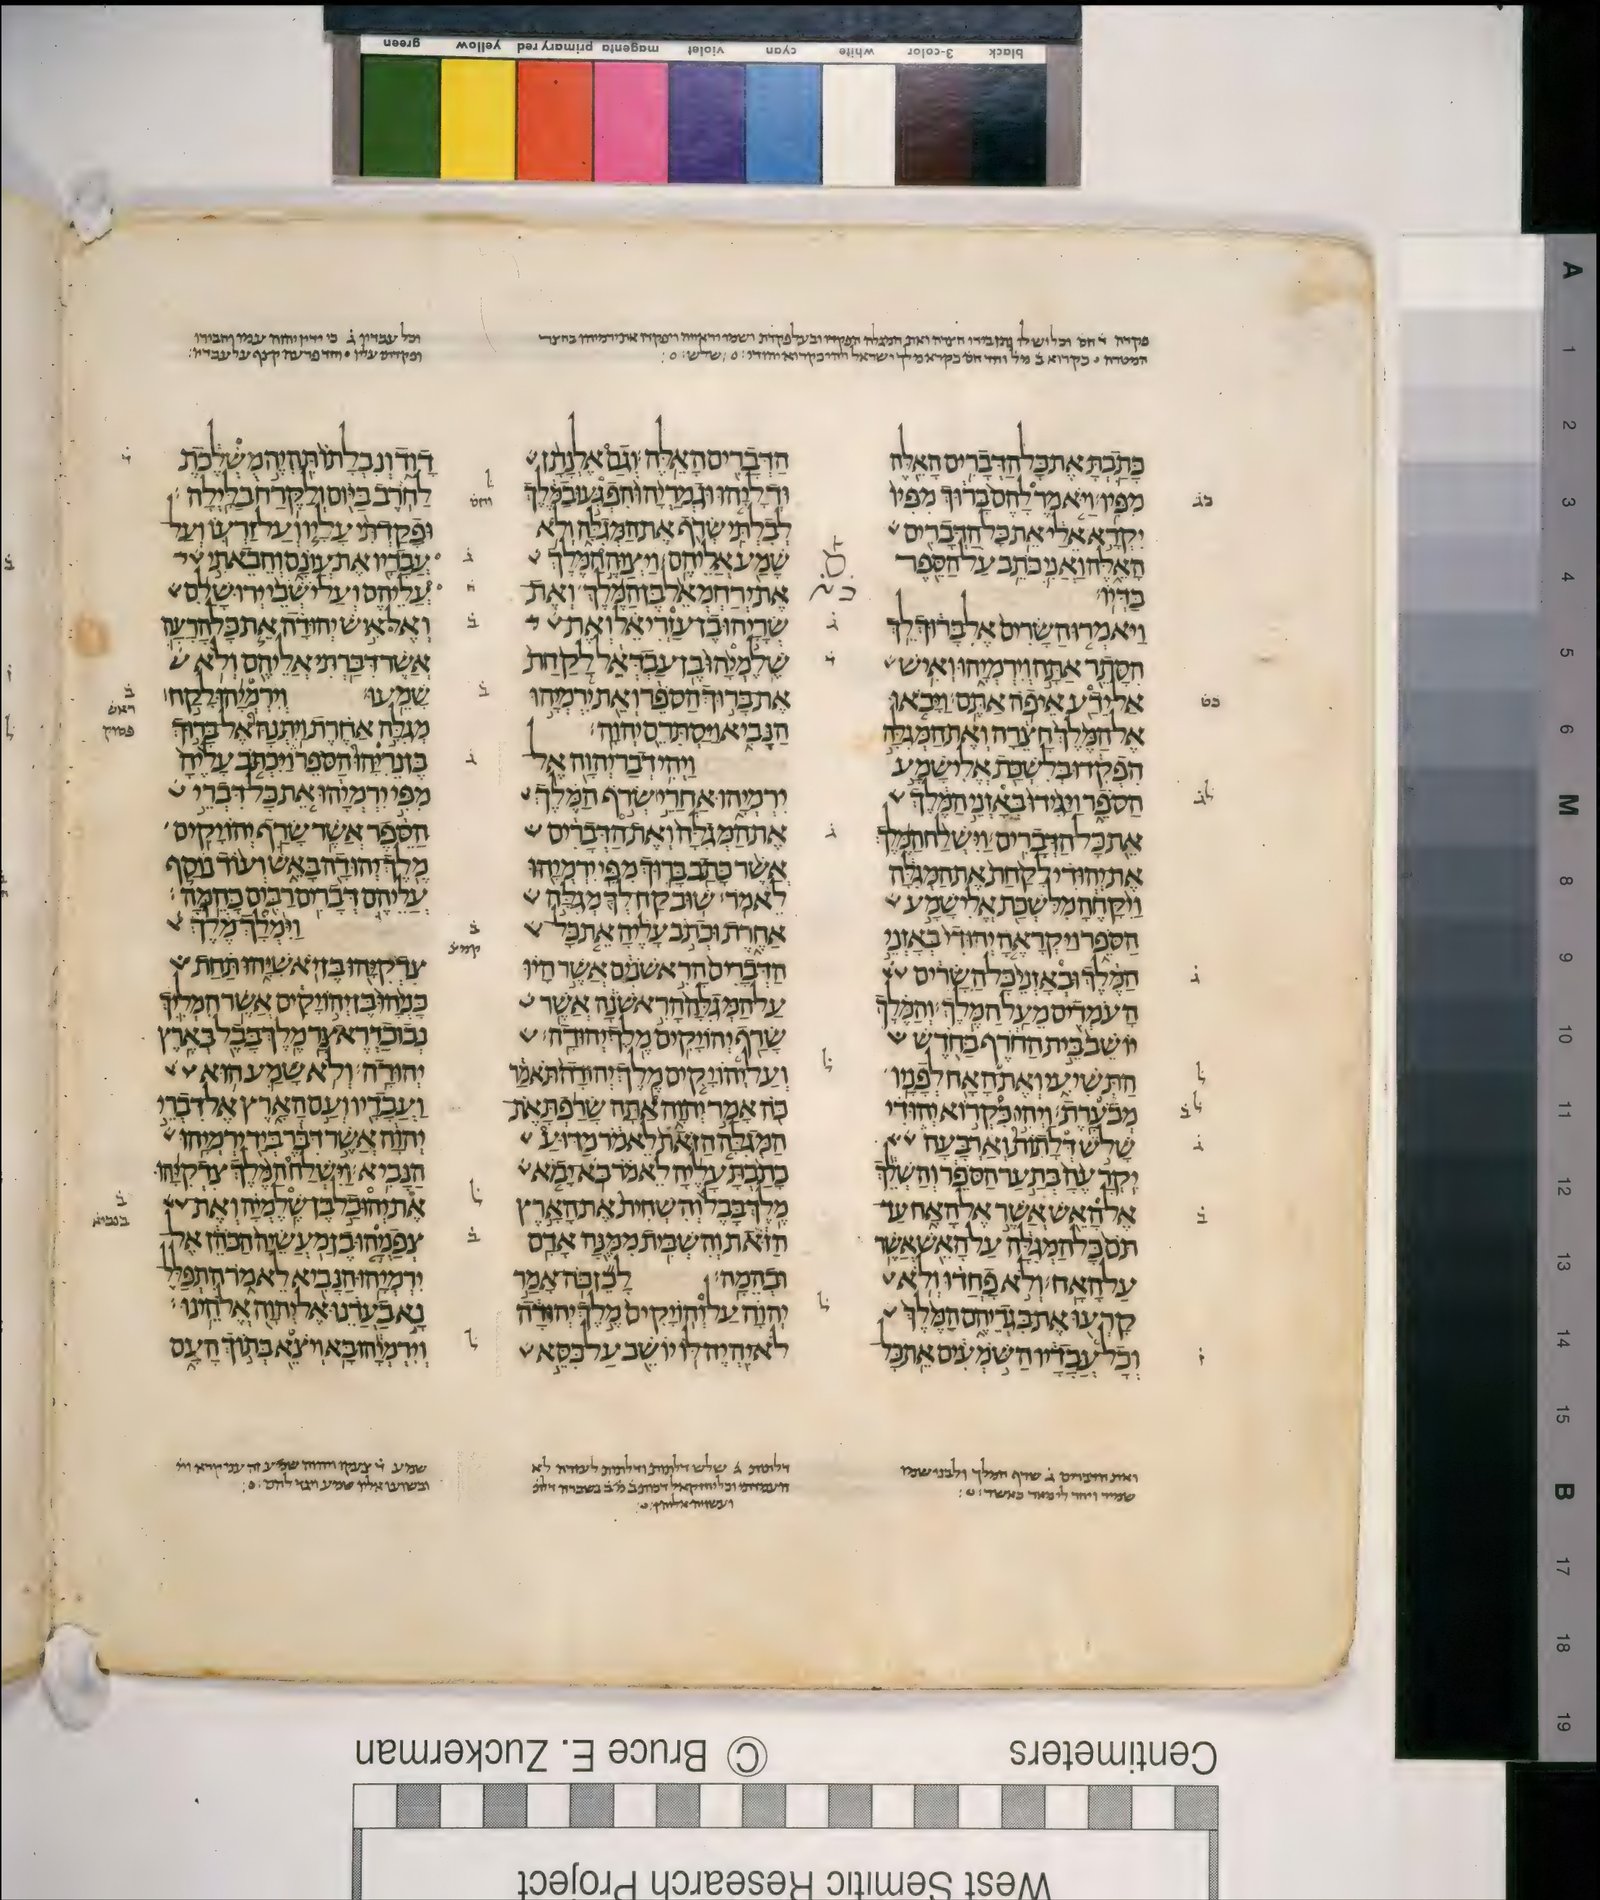 black 3-color white cyan violet magenta primary red yellow green
פקדה ד חס וכל ושל
וכל עבדיו ג
כתבת את כל הדברים האלה
מפיו ויאמר להם ברוך מפיו
יקרא אלי את כל הדברים
האלה ואני כתב על הספר
בדיו׃
ויאמרו השרים אל ברוך לך
הסתר אתה וירמיהו ואיש
אל ידע איפה אתם׃ ויבאו
אל המלך חצרה ואת המגלה
הפקדו בלשכת אלישמע
הספר ויגידו באזני המלך
את כל הדברים׃ וישלח המלך
את יהודי לקחת את המגלה
ויקחה מלשכת אלישמע
הספר ויקראה יהודי באזני
המלך ובאזני כל השרים
העמדים מעל המלך׃ והמלך
יושב בית החרף בחדש
התשיעי ואת האח לפניו
מבערת׃ ויהי כקרוא יהודי
שלש דלתות וארבעה
יקרעה בתער הספר והשלך
אל האש אשר אל האח עד
תם כל המגלה על האש אשר
על האח׃ ולא פחדו ולא
קרעו את בגדיהם המלך
וכל עבדיו השמעים את כל
הדברים האלה׃ וגם אלנתן
ודליהו וגמריהו הפגעו במלך
לבלתי שרף את המגלה ולא
שמע אליהם׃ ויצוה המלך
את ירחמאל בן המלך ואת
שריהו בן עזריאל ואת
שלמיהו בן עבדאל לקחת
את ברוך הספר ואת ירמיהו
הנביא ויסתרם יהוה׃
ויהי דבר יהוה אל
ירמיהו אחרי שרף המלך
את המגלה ואת הדברים
אשר כתב ברוך מפי ירמיהו
לאמר׃ שוב קח לך מגלה
אחרת וכתב עליה את כל
הדברים הראשנים אשר היו
על המגלה הראשנה אשר
שרף יהויקים מלך יהודה׃
ועל יהויקים מלך יהודה תאמר
כה אמר יהוה אתה שרפת את
המגלה הזאת לאמר מדוע
כתבת עליה לאמר בא יבוא
מלך בבל והשחית את הארץ
הזאת והשבית ממנה אדם
ובהמה׃ לכן כה אמר
יהוה על יהויקים מלך יהודה
לא יהיה לו יושב על כסא
דוד ונבלתו תהיה משלכת
לחרב ביום ולקרח בלילה׃
ופקדתי עליו ועל זרעו ועל
עבדיו את עונם והבאתי
עליהם ועל ישבי ירושלם
ואל איש יהודה את כל הרעה
אשר דברתי אליהם ולא
שמעו׃ וירמיהו לקח
מגלה אחרת ויתנה אל ברוך
בן נריהו הספר ויכתב עליה
מפי ירמיהו את כל דברי
הספר אשר שרף יהויקים
מלך יהודה באש ועוד נוסף
עליהם דברים רבים כהמה׃
וימלך מלך
צדקיהו בן יאשיהו תחת
כניהו בן יהויקים אשר המליך
נבוכדראצר מלך בבל בארץ
יהודה׃ ולא שמע הוא
ועבדיו ועם הארץ אל דברי
יהוה אשר דבר ביד ירמיהו
הנביא׃ וישלח המלך צדקיהו
את יהוכל בן שלמיה ואת
צפניהו בן מעשיה הכהן אל
ירמיהו הנביא לאמר התפלל
נא בעדנו אל יהוה אלהינו׃
וירמיהו בא ויצא בתוך העם
ואת הדברים ג שרף המלך
דלתות ג שלש דלתות
שמע
Centimeters © Bruce E. Zuckerman
West Semitic Research Project
A 1 2 3 4 5 6 M 8 9 10 11 12 13 14 15 B 17 18 19